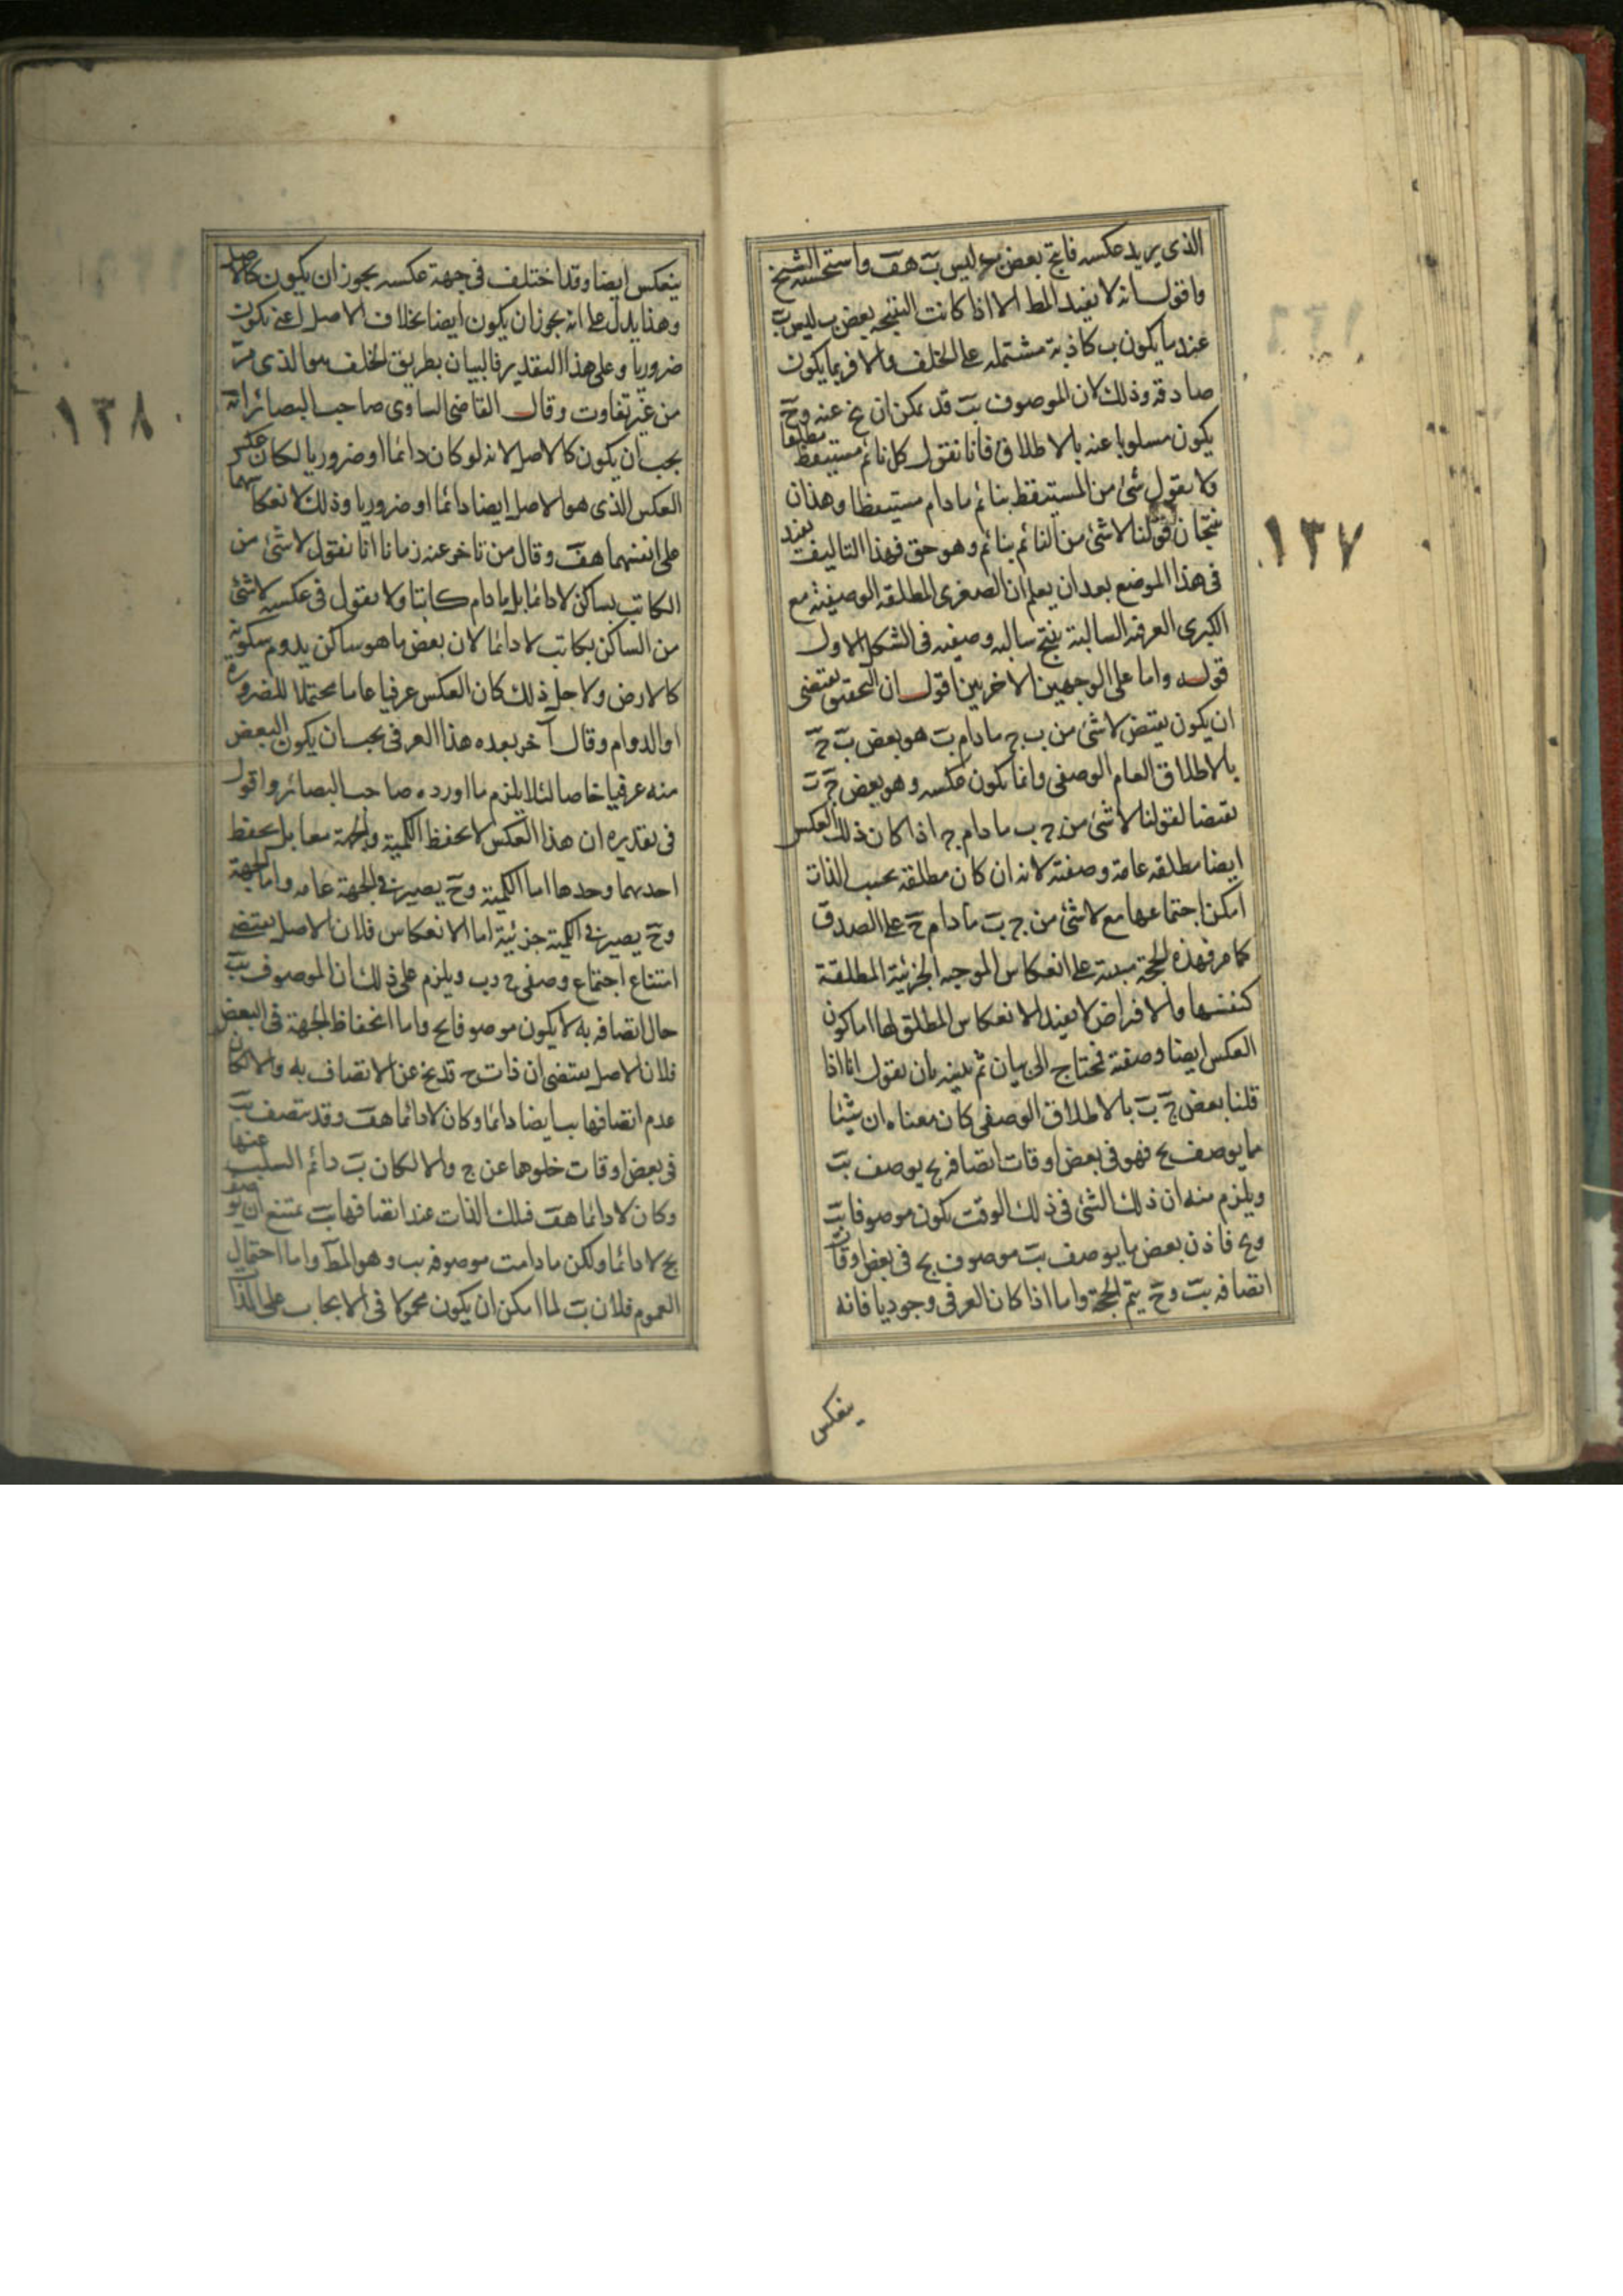 الذى يريد عكسه فانتج بعض ب ليس ب هف واستحسنه الشيخ
واقول انه لا يفيد المط الا اذا كانت النتيجه بعض ب ليس ب
عندما يكون ب كاذبة مشتمله على الخلف والا فربما يكون
صادقه وذلك لان الموصوف بب قد يمكن ان يخ عنه وح
يكون مسلوبا عنه بالاطلاق فانا نقول كل نائم مستيقظ مطلقا
ولا نقول شئ من المستيقظ بنائم مادام مستيقظا وهذان
ينتجان قولنا لا شئ من النائم بنائم وهو حق فهذا التاليف يفيد
فى هذا الموضع بعد ان يعلم ان الصغرى المطلقه الوصفية مع
الكبرى العرفيه السالبة ينتج سالبه وصفيه فى الشكل الاول
قوله واما على الوجهين الاخريين اقول ان التحقيق يقتضى
ان يكون نقيض لا شئ من ب ج مادام ب هو بعض ب ج
بالاطلاق العام الوصفى وانما يكون عكسه وهو بعض ج ب
نقيضا لقولنا لا شئ من ج ب مادام ج اذا كان ذلك العكس
ايضا مطلقه عامة وصفية لانه ان كان مطلقة بحسب الذات
امكن اجتماعها مع لا شئ من ج ب مادام ج على الصدق
كما مر فهذه الحجة مبنية على انعكاس الموجبه الجزئية المطلقة
كنفسها والافراض لا يفيد الا انعكاس المطلق لها اما كون
العكس ايضا وصفية فمحتاج الى بيان ثم نبينه بان نقول انا اذا
قلنا بعض ج ب بالاطلاق الوصفى كان معناه ان شيئا
مما يوصف بج فهو فى بعض اوقات اتصافه بج يوصف بب
ويلزم منه ان ذلك الشئ فى ذلك الوقت يكون موصوفا بب
وج فاذن بعض ما يوصف بب موصوف بج فى بعض اوقات
اتصافه بب وح يتم الحجة واما اذا كان العرفى وجوديا فانه
ينعكس
١٣٧
ينعكس ايضا وقد اختلف فى جهة عكسه يجوز ان يكون كالاصل
وهذا يدل على انه يجوز ان يكون ايضا بخلاف الاصل اعنى يكون
ضروريا وعلى هذا التقدير فالبيان بطريق الخلف هو الذى مر
من غير تفاوت وقال القاضى الساوى صاحب البصائر انه
يجب ان يكون كالاصل لانه لو كان دائما او ضروريا لكان عكس
العكس الذى هو الاصل ايضا دائما او ضروريا وذلك لانعكاسهما
على انفسهما هف وقال من تاخر عنه زمانا انا نقول لا شئ من
الكاتب بساكن لا دائما بل مادام كاتبا ولا نقول فى عكسه لا شئ
من الساكن بكاتب لا دائما لان بعض ما هو ساكن يدوم سكونه
كالارض ولاجل ذلك كان العكس عرفيا عاما محتملا للضرورة
او الدوام وقال آخر بعده هذا العرفى يجب ان يكون البعض
منه عرفيا خاصا لئلا يلزم ما اورده صاحب البصائر واقول
فى تقديره ان هذا العكس لا يحفظ الكمية والجهة معا بل يحفظ
احديهما وحدها اما الكمية وح يصير فى الجهة عامه واما الجهة
وح يصير فى الكمية جزئية اما الانعكاس فلان الاصل يقتضى
امتناع اجتماع وصفى ج وب ويلزم على ذلك ان الموصوف بب
حال اتصافه به لا يكون موصوفا بج واما انحفاظ الجهة فى البعض
فلان الاصل يقتضى ان ذات ج قد يخ عن الاتصاف به والا لكان
عدم اتصافها بب ايضا دائما وكان لا دائما هف وقد يتصف بب
فى بعض اوقات خلوها عن ج والا لكان ب دائم السلب عنها
وكان لا دائما هف فتلك الذات عند اتصافها بب يمتنع ان يوصف
بج لا دائما ولكن مادامت موصوفه بب وهو المط واما احتمال
العموم فلان ب لما امكن ان يكون محمولا فى الايجاب على الذات
١٣٨